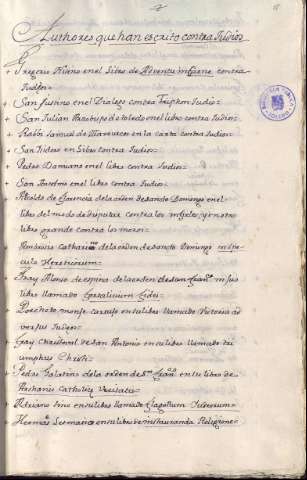 Authores que han escrito contra Judios
Gregorio Niceno en el Libro de Adventu in carne contra
Judios=
+ San Justino en el Dialogo contra Triphon Judio=
+ San Julian Arzobispo de toledo en el libro contra Judios=
+ Rabbi Samuel de Marruecos en la carta contra Judios=
+ San Isidoro en Libro contra Judios=
+ Pedro Damiano en el libro contra Judios=
+ San Antonio en el libro contra Judios=
de la orden de sancto Domingo en el
libro del modo de disputar contra los infieles, y en otro
libro grande contra los moros=
+ Ambrosio Catharino de la orden de sancto Domingo in Spe-
culo Hereticorum=
+ Fray Alonso de espina de la orden de san Franco. in su
libro llamado Fortalicium Fidei=
+ Porcheto monje cartuxo en su libro llamado Victoria ad
versus Judeos=
+ Fray Christoval de San Antonio en su libro llamado tri
umphus Christi=
+ Pedro Galatino de la orden de Sn. Franco. en su libro de
Archanis Catholice Veritatis=
+ Adriano fino en su libro llamado Flagellum Judeorum=
+ Hernan en su libro de instauranda Religione=